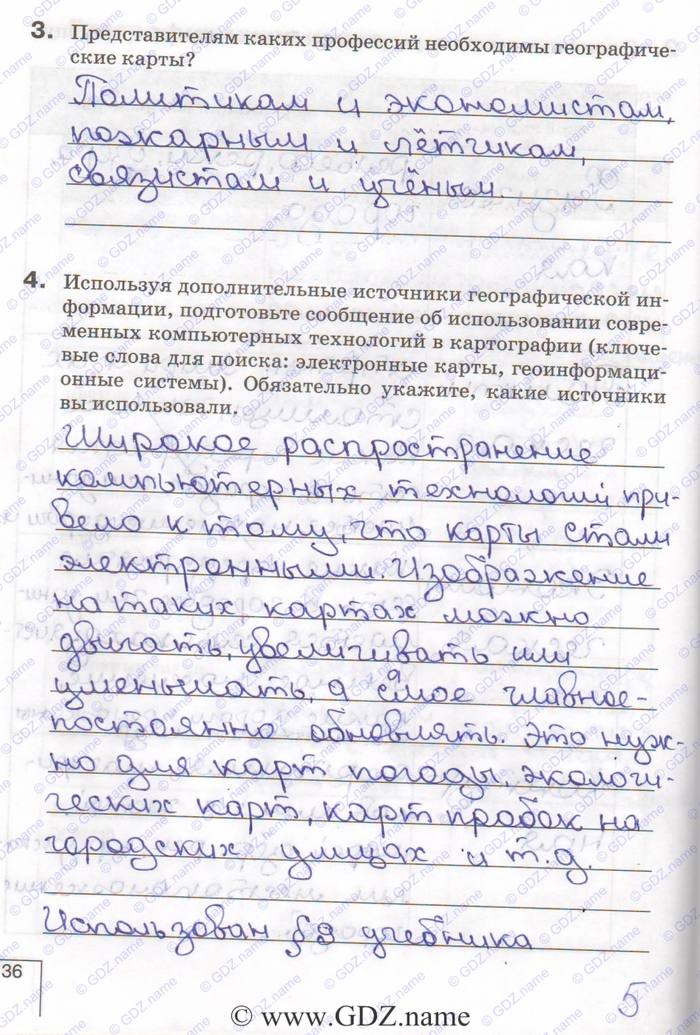 3. Представителям каких профессий необходимы географиче-
ские карты?
Политикам и экономистам,
пожарным и лётчикам,
связистам и учёным.
4. Используя дополнительные источники географической ин-
формации, подготовьте сообщение об использовании совре-
менных компьютерных технологий в картографии (ключе-
вые слова для поиска: электронные карты, геоинформаци-
онные системы). Обязательно укажите, какие источники
вы использовали.
Широкое распространение
компьютерных технологий при-
вело к тому, что карты стали
электронными. Изображение
на таких картах можно
двигать, увеличивать или
уменьшать, а самое главное -
постоянно обновлять. Это нуж-
но для карт погоды, экологи-
ческих карт, карт пробок на
городских улицах и т.д.
Использован § 9 учебника
36
5
© www.GDZ.name